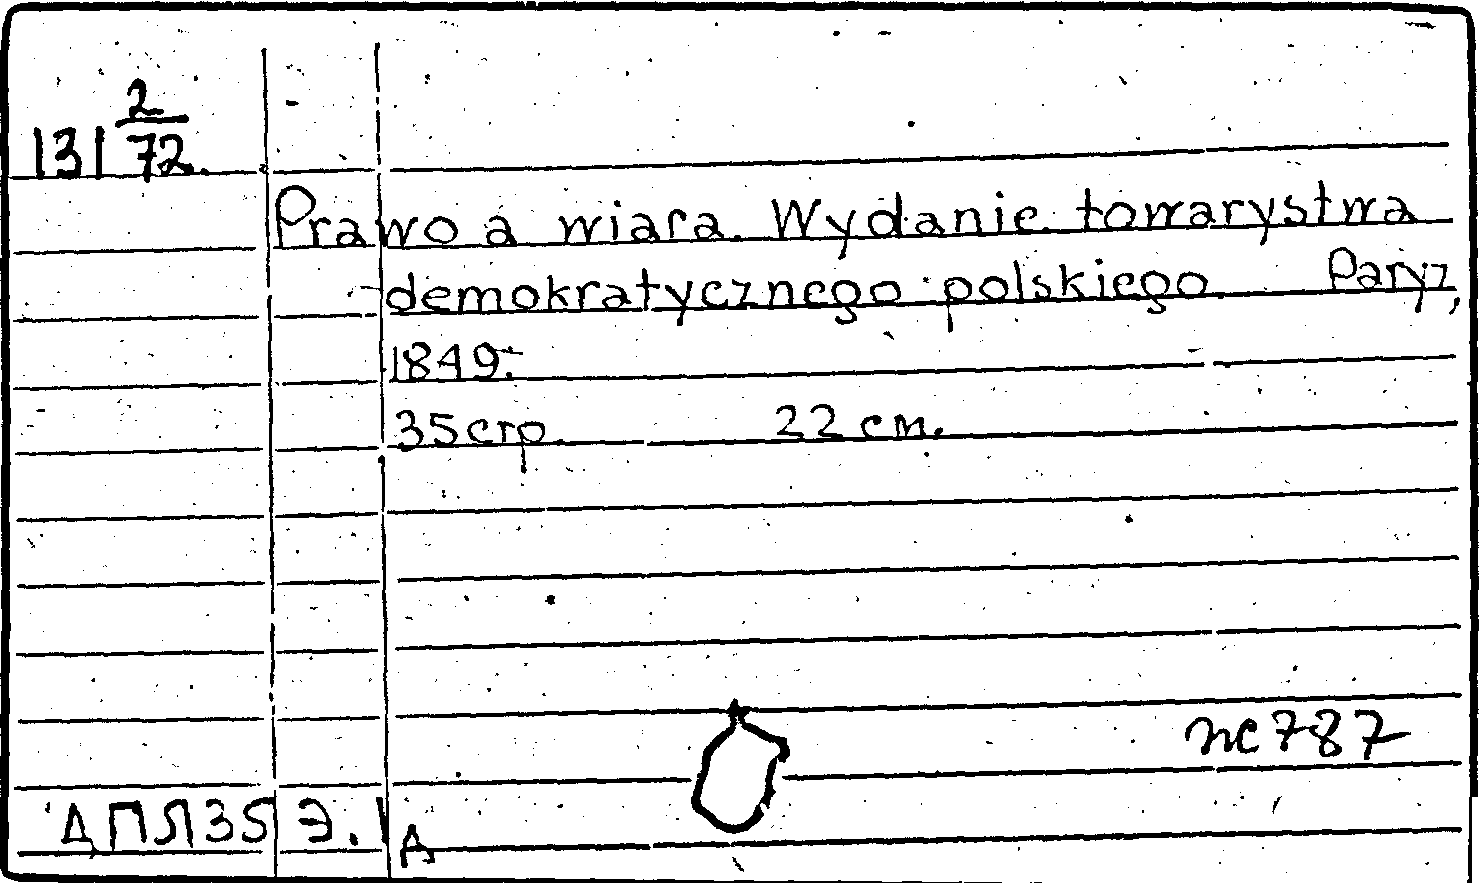 131 2/72.
Prawo a wiara. Wydanie towarystwa
demokratycznego polskiego. Paryz,
1849.
35 стр. 22 см.
пс 787
ДПЛ35 Э.